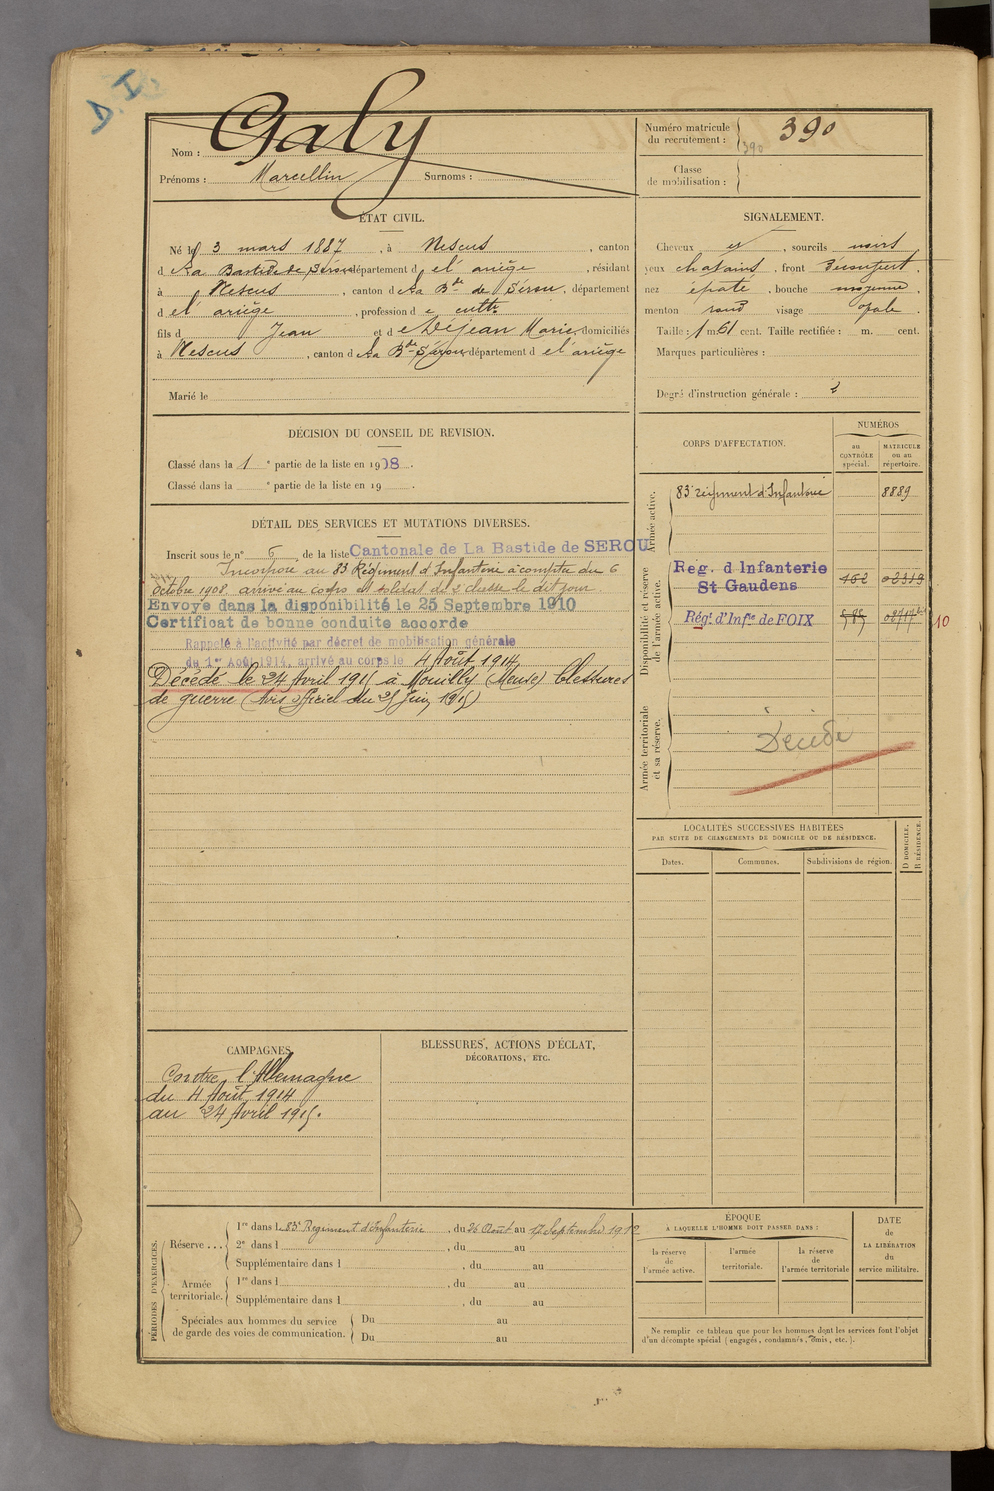 D. I.
Galy
Nom :
Prénoms : Marcellin Surnoms :
Numéro matricule du recrutement : 390
390
Classe de mobilisation :
ÉTAT CIVIL.
Né le 3 mars 1887, à Nescus, canton
d La Bastide de Sérou département d el' ariège, résidant
à Nescus, canton d La B.de de Sérou, département
d el' ariège, profession d e cultr
fils d Jean et d e Dejean Marie, domiciliés
à Nescus, canton d La B.de Sérou département d el'ariège
Marié le
SIGNALEMENT.
Cheveux et, sourcils noirs
yeux chatains, front Découvert,
nez épaté, bouche moyenne,
menton rond visage ovale.
Taille : 1 m. 61 cent. Taille rectifiée : m. cent.
Marques particulières :
Degré d'instruction générale : 2
DÉCISION DU CONSEIL DE REVISION.
Classé dans la 1e partie de la liste en 1908.
Classé dans la e partie de la liste en 19 .
DÉTAIL DES SERVICES ET MUTATIONS DIVERSES.
Inscrit sous le n° 6 de la liste Cantonale de La Bastide de SEROU
Incorporé au 83 Régiment d'Infanterie à compter du 6
octobre 1908, arrivé au corps et soldat de 2e classe le dit jour.
Envoyé dans la disponibilité le 25 Septembre 1910
Certificat de bonne conduite accordé
Rappelé à l'activité par décret de mobilisation générale
du 1er Août 1914, arrivé au corps le 4 Août 1914
Décédé le 24 Avril 1915 à Mouilly (Meuse) blessures
de guerre (Avis officiel du 25 Juin 1915)
CORPS D'AFFECTATION.
NUMÉROS
au CONTRÔLE spécial.
MATRICULE ou au répertoire.
Armée active.
83e régiment d'Infanterie 8889
Disponibilité et réserve de l'armée active.
Reg. d Infanterie
St Gaudens 162 02319
Régt d'Infie de FOIX 585 02717 bis
10
Armée territoriale et sa réserve.
Décédé
LOCALITÉS SUCCESSIVES HABITÉES
PAR SUITE DE CHANGEMENTS DE DOMICILE OU DE RÉSIDENCE.
Dates. Communes. Subdivisions de région. D DOMICILE. R RÉSIDENCE.
CAMPAGNES.
Contre l'Allemagne
du 4 Août 1914
au 24 Avril 1915.
BLESSURES, ACTIONS D'ÉCLAT,
DÉCORATIONS, ETC.
PÉRIODES D'EXERCICES.
Réserve ...
1re dans l e 83e Régiment d'Infanterie, du 26 Août au 17 Septembre 1912
2e dans l , du au
Supplémentaire dans l , du au
Armée territoriale.
1re dans l , du au
Supplémentaire dans l , du au
Spéciales aux hommes du service de garde des voies de communication.
Du au
Du au
ÉPOQUE
À LAQUELLE L'HOMME DOIT PASSER DANS :
la réserve de l'armée active.
l'armée territoriale.
la réserve de l'armée territoriale
DATE de LA LIBÉRATION du service militaire.
Ne remplir ce tableau que pour les hommes dont les services font l'objet
d'un décompte spécial (engagés, condamnés, omis, etc.).